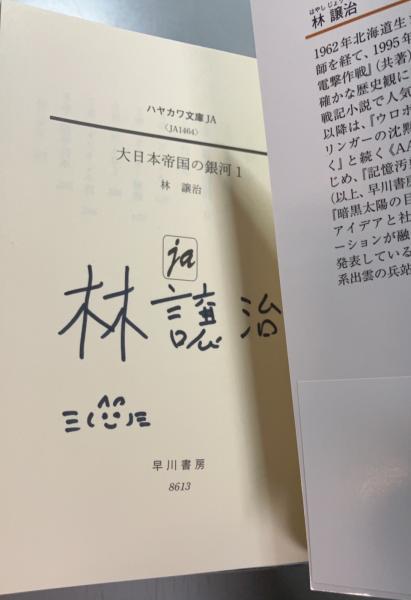 ハヤカワ文庫JA
〈JA1464〉
大日本帝国の銀河1
林 譲治
ja
林 譲治
早川書房
8613
はやしじょう
林 譲治
1962年北海道生
師を経て、1995年
電撃作戦』(共著)
確かな歴史観に
戦記小説で人気
以降は、『ウロボ
リンガーの沈黙
く』と続く《AA
じめ、『記憶汚
(以上、早川書房
『暗黒太陽の目
アイデアと社
ーションが融
発表している
系出雲の兵站